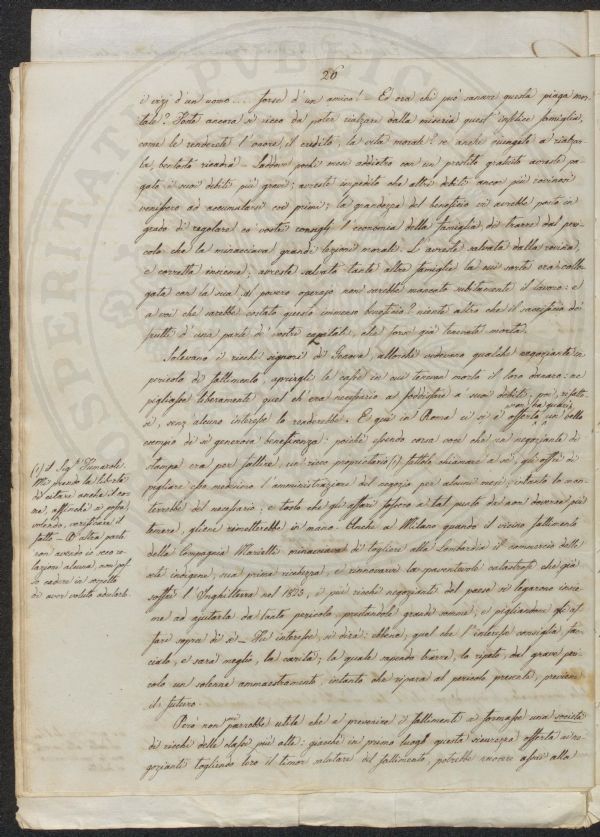 26
i vizj d'un uomo .... forse d'un amico! — Ed ora chi può sanare questa piaga mor-
tale? Foste ancora sì ricco da poter rialzare dalla miseria quest'infelice famiglia,
come le renderete l'onore, il credito, la vita morale? se anche giungete a rialzar-
la, bentosto ricadrà — Laddove pochi mesi addietro con un prestito gratuito avreste pa-
gato i suoi debiti più gravi; avreste impedito che altri debiti ancor più rovinosi
venissero ad accumularsi coi primi; la grandezza del beneficio vi avrebbe posto in
grado di regolare co' vostri consigli l'economia della famiglia, di trarre dal peri-
colo che la minacciava grandi lezioni morali. L'avreste salvata dalla rovina,
e corretta insieme; avreste salvata tante altre famiglie la cui sorte era colle-
gata con la sua; al povero operajo non sarebbe mancato subitamente il lavoro: e
a voi che sarebbe costato questo immenso beneficio? niente altro che il sacrificio dei
frutti d'una parte de' vostri capitali, che forse già tenevate morta.
Solevano i ricchi signori di Genova, allorchè vedevano qualche negoziante in
pericolo di fallimento, aprirgli le casse in cui tenevan morto il loro denaro: ne
pigliasse liberamente quel ch'era necessario a soddisfare a' suoi debiti, poi, rifatto-
si, senz'alcuno interesse lo renderebbe. E qui in Roma ci si è offerto, non ha guari, un bello
esempio di sì generosa beneficenza: poichè essendo corsa voce che un negoziante di
stampe era per fallire, un ricco proprietario (1) fattolo chiamare a sè, gli offrì di
pigliare esso medesimo l'amministrazione del negozio per alcuni mesi; intanto lo man-
terrebbe del necessario; e tosto che gli affari fossero a tal punto da non doverne più
temere, gliene rimetterebbe in mano. Anche a Milano quando il vicino fallimento
della Compagnia Marietti minacciava di togliere alla Lombardia il commercio delle
sete indigene, sua prima ricchezza, e rinnovarvi la spaventevole catastrofe che già
soffrì l'Inghilterra nel 1825, i più ricchi negozianti del paese si legarono insie-
me ad ajutarla da tanto pericolo, prestandole grandi somme, e pigliandone gli af-
fari sopra di sè — Fu interesse, si dirà: ebbene, quel che l'interesse consiglia, fac-
cialo, e sarà meglio, la carità; la quale sapendo trarre, lo ripeto, dal grave peri-
colo un solenne ammaestramento, intanto che ripara al pericolo presente, previene
il futuro.
Però non mi parrebbe utile che a prevenire i fallimenti si formasse una società
di ricchi delle classi più alte: giacchè in primo luogo questa sicurezza offerta ai ne-
gozianti togliendo loro il timor salutare del fallimento, potrebbe nuocere assai alla
(1) Il Sig.r Tunaroli.
Mi prendo la libertà
di citare anche il no-
me, affinchè si possa,
volendo, verificare il
fatto — D'altra parte
non avendo io seco re-
lazione alcuna, non pos-
so cadere in sospetto
di aver voluto adularlo.